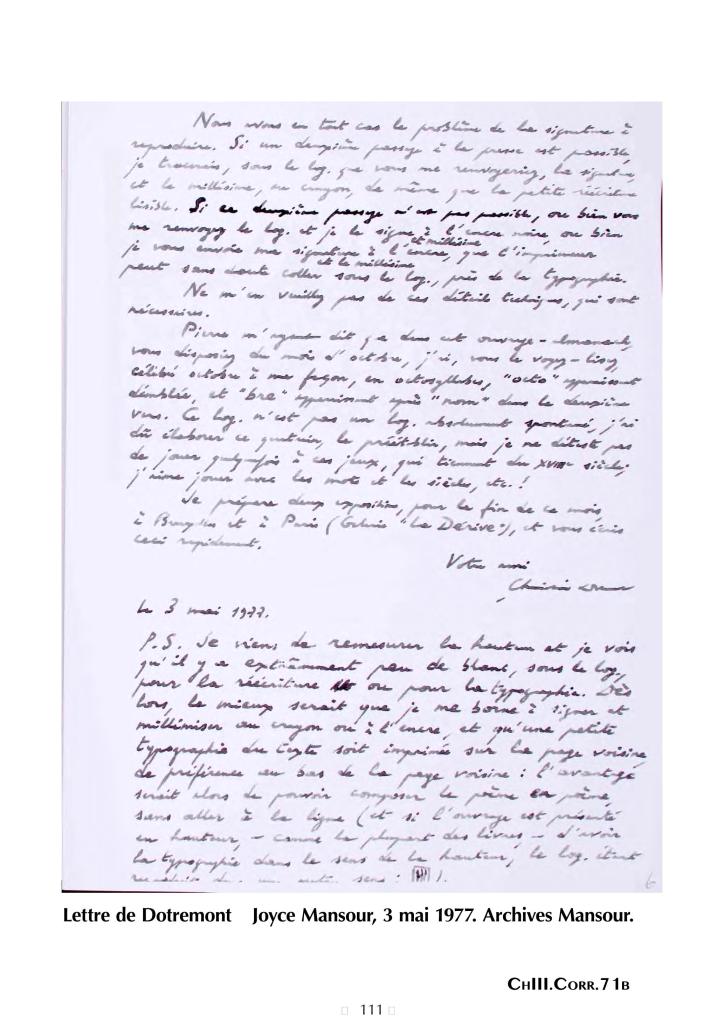 Nous avons en tout cas le problème de la signature à
reproduire. Si un deuxième passage à la presse est possible,
je tracerais, sous le log. que vous me renverriez, la signature,
et le millésime, au crayon, de même que la petite réécriture
lisible. Si ce deuxième passage n'est pas possible, ou bien vous
me renvoyez le log. et je le signe à l'encre noire, ou bien
et millésime
je vous envoie ma signature à l'encre, que l'imprimeur
et le millésime
peut sans doute coller sous le log., près de la typographie.
Ne m'en veuillez pas de ces détails techniques, qui sont
nécessaires.
Pierre m'ayant dit que dans cet ouvrage-almanach,
vous disposiez du mois d'octobre, j'ai, vous le voyez-lisez,
célébré octobre à ma façon, en octosyllabes, "octo" apparaissant
d'emblée, et "bre" apparaissant après "nom" dans le deuxième
vers. Ce log. n'est pas un log. absolument spontané, j'ai
dû élaborer ce quatrain, le préétablir, mais je ne déteste pas
de jouer quelquefois à ces jeux, qui tiennent du XVIIIe siècle;
j'aime jouer avec les mots et les siècles, etc.!
Je prépare deux expositions, pour la fin de ce mois,
à Bruxelles et à Paris (Galerie "La Dérive"), et vous écris
ceci rapidement.
Votre ami
Le 3 mai 1977.
P.S. Je viens de remesurer la hauteur et je vois
qu'il y a extrêmement peu de blanc, sous le log.,
pour la réécriture ou pour la typographie. Dès
lors, le mieux serait que je me borne à signer et
millésimer au crayon ou à l'encre, et qu'une petite
typographie du texte soit imprimée sur la page voisine,
de préférence au bas de la page voisine : l'avantage
serait alors de pouvoir composer le poème en poème,
sans aller à la ligne (et si l'ouvrage est présenté
en hauteur, - comme la plupart des livres - d'avoir
la typographie dans le sens de la hauteur, le log. étant
sens : ).
6
Lettre de Dotremont Joyce Mansour, 3 mai 1977. Archives Mansour.
CHIII.CORR.71B
111